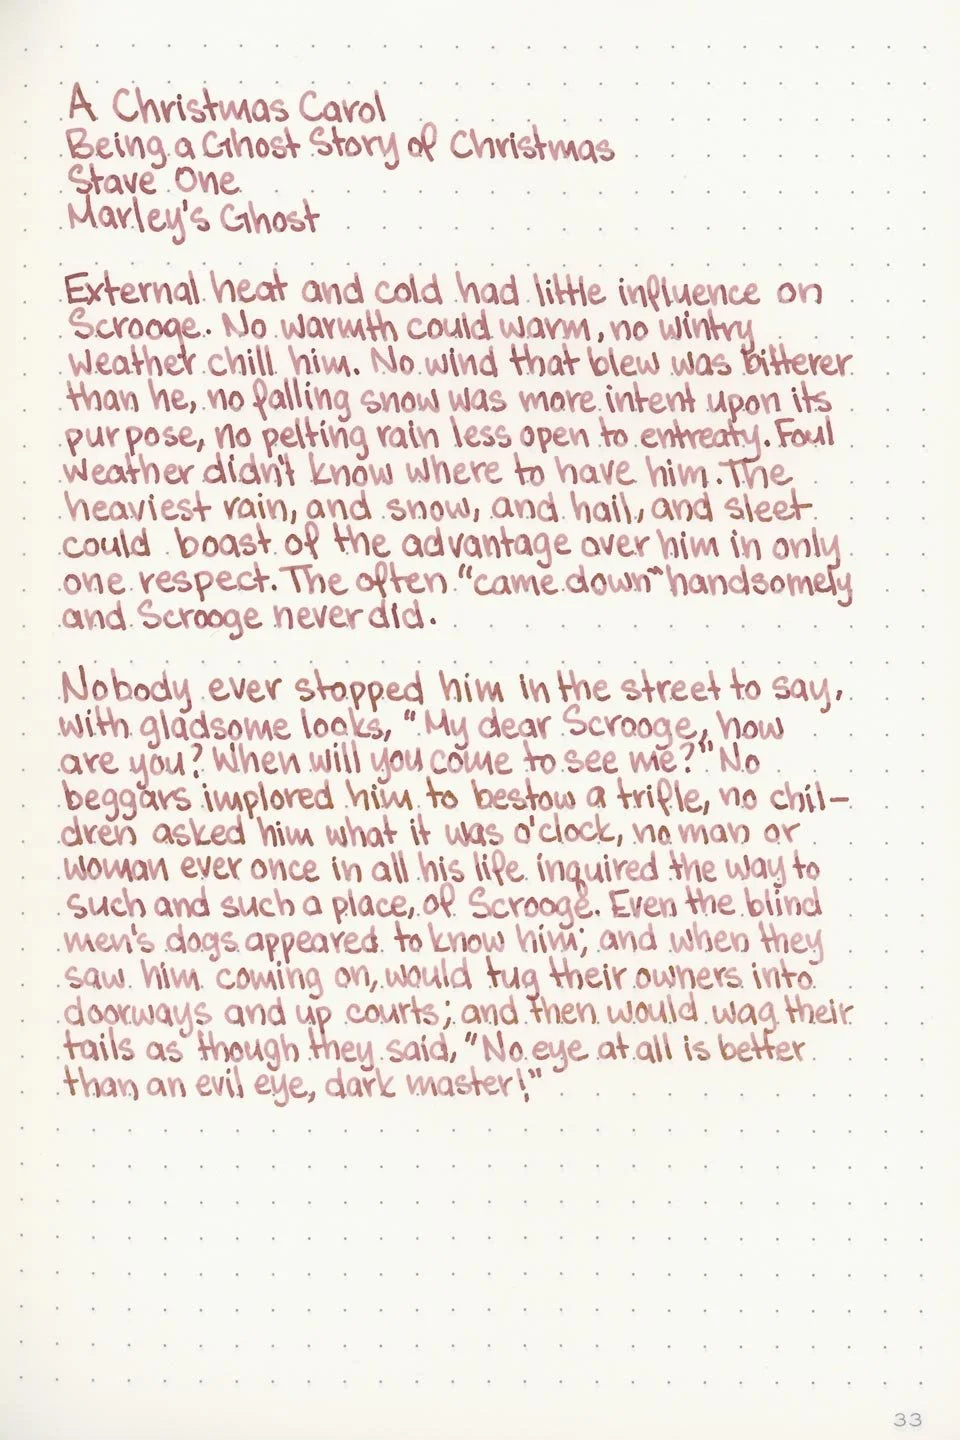 A Christmas Carol
Being a Ghost Story of Christmas
Stave One
Marley's Ghost
External heat and cold had little influence on
Scrooge. No warmth could warm, no wintry
weather chill him. No wind that blew was bitterer
than he, no falling snow was more intent upon its
purpose, no pelting rain less open to entreaty. Foul
weather didn't know where to have him. The
heaviest rain, and snow, and hail, and sleet
could boast of the advantage over him in only
one respect. The often "came down" handsomely
and Scrooge never did.
Nobody ever stopped him in the street to say,
with gladsome looks, "My dear Scrooge, how
are you? When will you come to see me?" No
beggars implored him to bestow a trifle, no chil-
dren asked him what it was o'clock, no man or
woman ever once in all his life inquired the way to
such and such a place, of Scrooge. Even the blind
men's dogs appeared to know him; and when they
saw him coming on, would tug their owners into
doorways and up courts; and then would wag their
tails as though they said, "No eye at all is better
than an evil eye, dark master!"
33